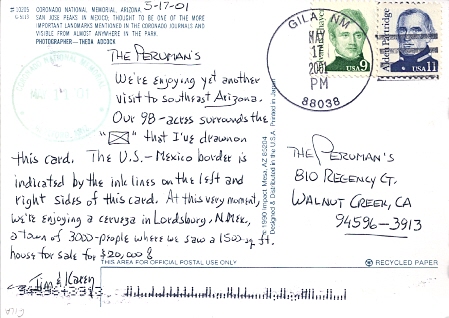 5-17-01
#13205 CORONADO NATIONAL MEMORIAL, ARIZONA
SAN JOSE PEAKS IN MEXICO; THOUGHT TO BE ONE OF THE MORE
IMPORTANT LANDMARKS MENTIONED IN THE CORONADO JOURNALS AND
VISIBLE FROM ALMOST ANYWHERE IN THE PARK.
PHOTOGRAPHER—THEDA ADCOCK
THE PERUMAN'S
WE'RE ENJOYING YET ANOTHER
VISIT TO SOUTHEAST ARIZONA.
OUR 98-ACRES SURROUNDS THE
" " THAT I'VE DRAWN ON
THIS CARD. THE U.S.-MEXICO BORDER IS
INDICATED BY THE INK LINES ON THE LEFT AND
RIGHT SIDES OF THIS CARD. AT THIS VERY MOMENT,
WE'RE ENJOYING A CERVEZA IN LORDSBURG, N.MEX,
A TOWN OF 3000-PEOPLE WHERE WE SAW A 1500 SQ. FT.
HOUSE FOR SALE FOR $20,000!
JIM & KAREN
GILA, NM
MAY
17
2001
PM
88038
USA 9
Alden Partridge
USA 11
© 1990 Impact, Mesa, AZ 85204
Designed & Distributed in the U.S.A. Printed in Japan
THE PERUMAN'S
810 REGENCY CT.
WALNUT CREEK, CA
94596-3913
THIS AREA FOR OFFICIAL POSTAL USE ONLY
RECYCLED PAPER